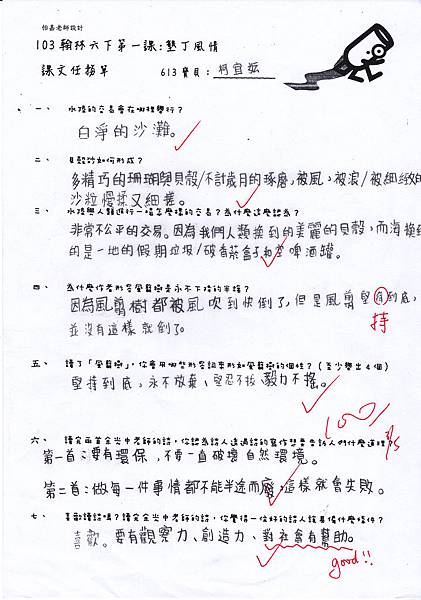 怡嘉老師設計
103翰林六下第一課:墾丁風情
課文任務單 613寶貝:柯宜
一、 水陸的交易會在哪裡舉行?
白淨的沙灘。
二、 貝殼沙如何形成?
多精巧的珊瑚與貝殼/不計歲月的琢磨,被風,被浪/被細緻的
沙粒慢揉又細搓。
三、 水陸與人類進行一場怎麼樣的交易?為什麼這麼認為?
非常不公平的交易。因為我們人類換到的美麗的貝殼,而海換給
的是一地的假期垃圾/破有茶盒子和空啤酒罐。
四、 為什麼作者形容風剪樹是永不下格的半旗?
因為風剪樹都被風吹到快倒了,但是風剪堅有到底,
持
並沒有這樣就倒了。
五、 讀了「風剪樹」,你會用哪些形容詞來形容風剪樹的個性?(至少舉出4個)
堅持到底、永不放棄、堅忍不拔、毅力不搖。
100
六、 讀完兩首余光中老師的詩,你認為詩人透過詩的寫作想要告訴人們什麼道理?
第一首:要有環保,不要一直破壞自然環境。
第二首:做每一件事情都不能半途而廢,這樣就會失敗。
七、 喜歡讀詩嗎?讀完余光中老師的詩,你覺得一位好的詩人該具備什麼條件?
喜歡。要有觀察力、創造力、對社會有幫助。
good!!